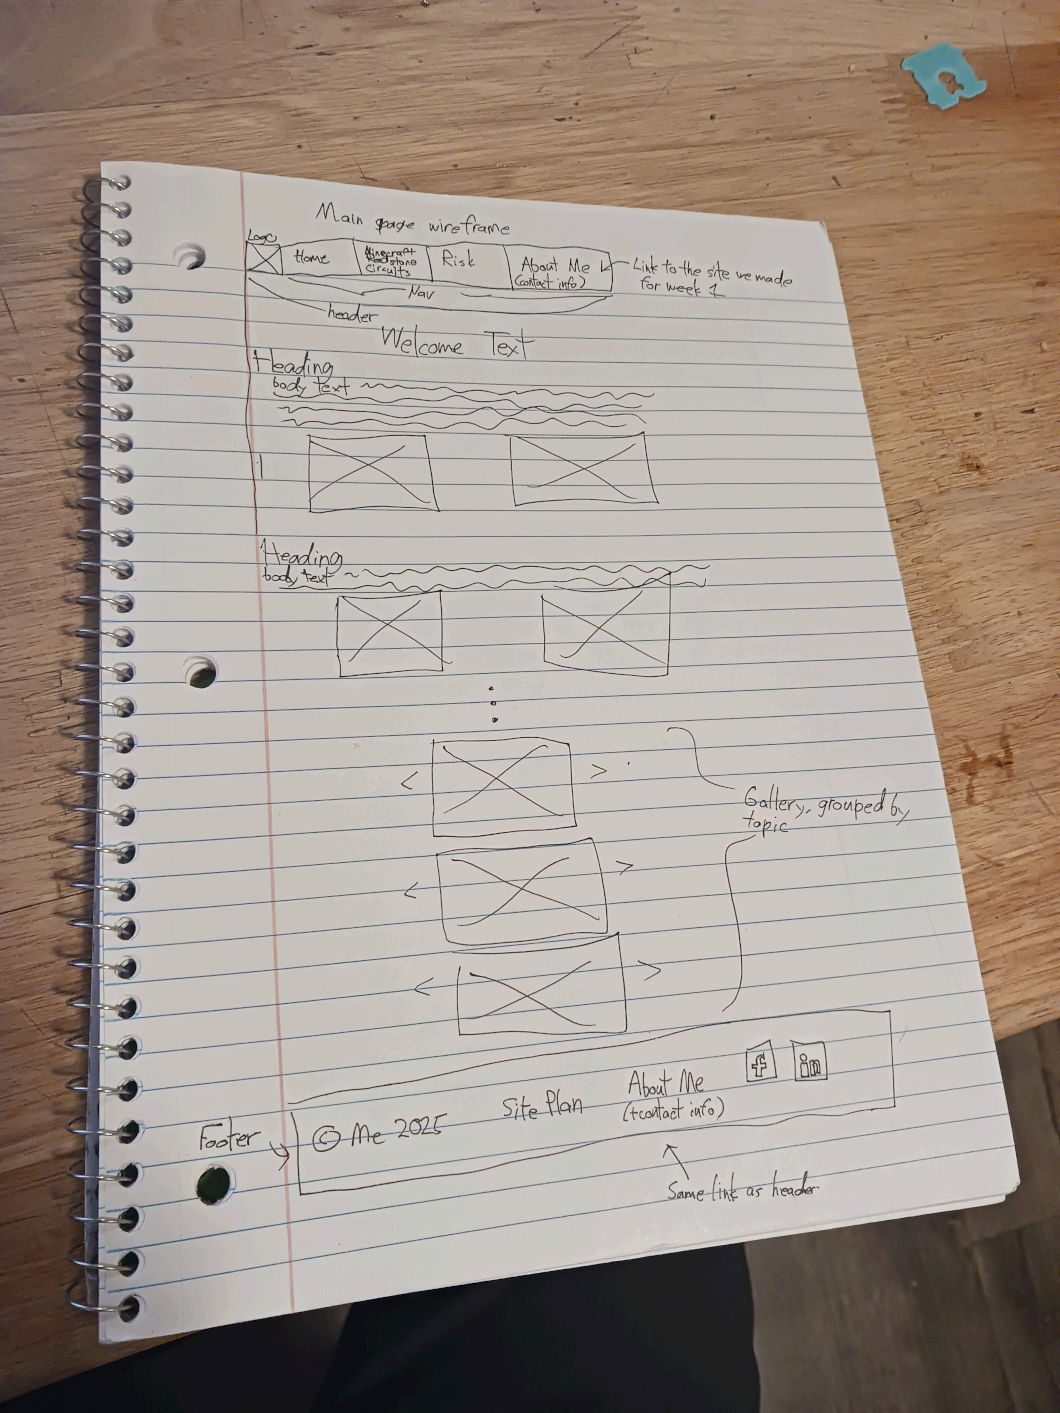 Main page wireframe
Logo
Home
Minecraft
Redstone
circuits
Risk
About Me
(contact info)
Link to the site we made
for week 1
Nav
header
Welcome Text
Heading
body text
Heading
body text
< >
Gallery, grouped by
topic
< >
< >
Footer
© Me 2025
Site Plan
About Me
(+contact info)
f
in
Same link as header